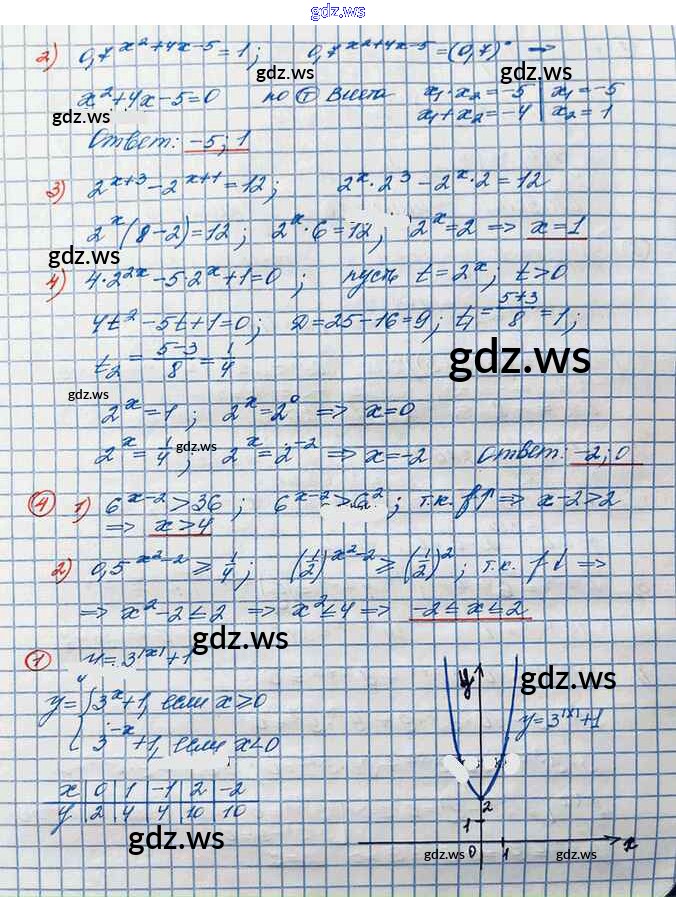 gdz.ws
2) 0,7^(x²+4x-5) = 1; 0,7^(x²+4x-5) = (0,7)° →
gdz.ws
x²+4x-5=0 по Ⓣ Виета x₁·x₂=-5 | x₁=-5
gdz.ws gdz.ws
x₁+x₂=-4 | x₂=1
Ответ: -5; 1
3) 2^(x+3) - 2^(x+1) = 12; 2^x·2³ - 2^x·2 = 12
2^x(8-2)=12; 2^x·6=12; 2^x=2 => x=1
gdz.ws
4) 4·2^(2x) - 5·2^x + 1 = 0; пусть t=2^x; t>0
4t²-5t+1=0; D=25-16=9; t₁=(5+3)/8=1;
t₂=(5-3)/8=1/4
gdz.ws
gdz.ws
2^x=1; 2^x=2⁰ => x=0
gdz.ws
2^x=1/4; 2^x=2^(-2) => x=-2 Ответ: -2; 0
④ 1) 6^(x-2)>36; 6^(x-2)>6²; т.к. f↑ => x-2>2
=> x>4
2) 0,5^(x²-2) ≥ 1/4; (1/2)^(x²-2) ≥ (1/2)²; т.к. f↓ =>
=> x²-2≤2 => x²≤4 => -2≤x≤2
gdz.ws
① y=3^|x|+1
gdz.ws
y={3^x+1, если x≥0
3^(-x)+1, если x<0
y
y=3^|x|+1
x | 0 | 1 | -1 | 2 | -2
y | 2 | 4 | 4 | 10 | 10
2
1
gdz.ws
0 1 x
gdz.ws gdz.ws